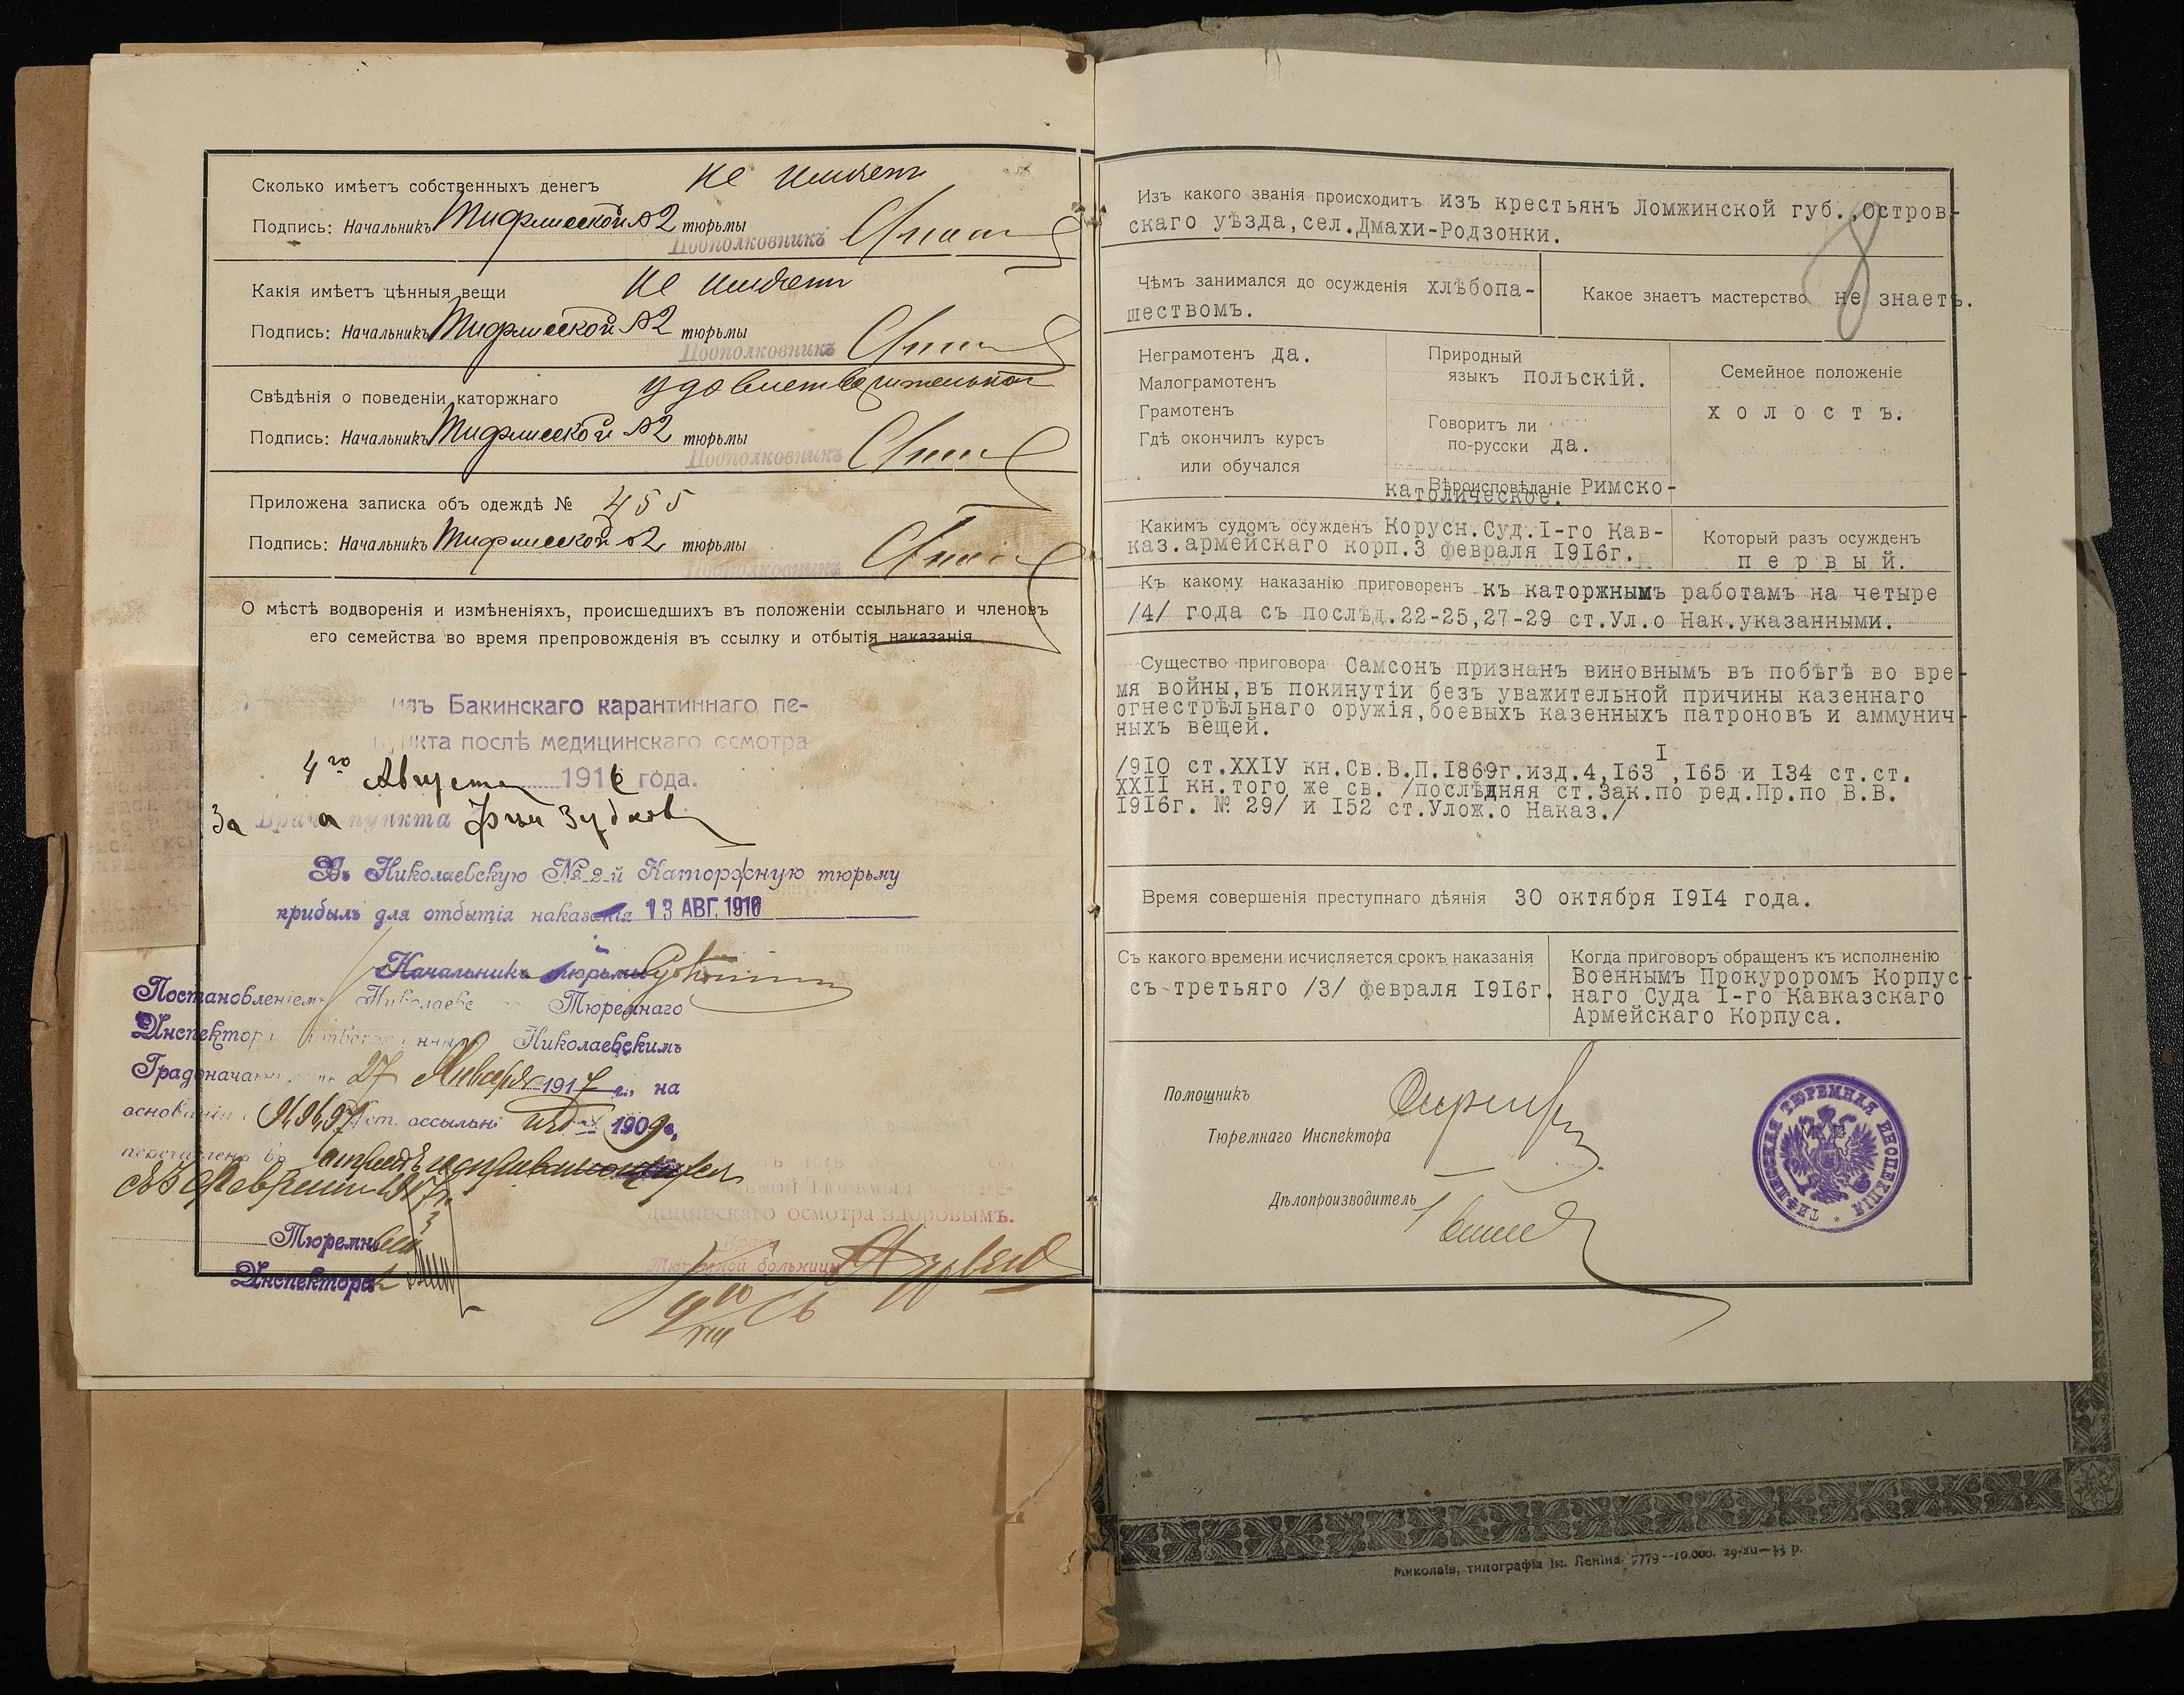 Сколько имѣетъ собственныхъ денегъ не имѣетъ
Подпись: Начальникъ Тифлисской №2 тюрьмы
Подполковникъ
Какія имѣетъ цѣнныя вещи не имѣетъ
Подпись: Начальникъ Тифлисской №2 тюрьмы
Подполковникъ
Свѣдѣнія о поведеніи каторжнаго удовлетворительное
Подпись: Начальникъ Тифлисской №2 тюрьмы
Подполковникъ
Приложена записка объ одеждѣ № 455
Подпись: Начальникъ Тифлисской №2 тюрьмы
Подполковникъ
О мѣстѣ водворенія и измѣненіяхъ, происшедшихъ въ положеніи ссыльнаго и членовъ
его семейства во время препровожденія въ ссылку и отбытія наказанія
изъ Бакинскаго карантиннаго пе-
пункта послѣ медицинскаго осмотра
4го Августа 1916 года.
За Врача пункта
Въ Николаевскую № 2-й Каторжную тюрьму
прибылъ для отбытія наказанія 13 АВГ. 1916
Начальникъ тюрьмы
Постановленіемъ Николаевс Тюремнаго
Инспектора Николаевскимъ
Градоначал 27 Января 1917 г., на
основаніи ст. ссыльн изд 1909 г.,
перечисленъ въ отрядъ исправляющихся
съ 3 Февраля 1917 г.
Тюремный
Инспекторъ
дицинскаго осмотра здоровымъ.
Врачъ
Тюремной больницы
Изъ какого званія происходитъ изъ крестьянъ Ломжинской губ., Остров-
скаго уѣзда, сел. Дмахи-Родзонки.
8
Чѣмъ занимался до осужденія хлѣбопа-
шествомъ.
Какое знаетъ мастерство не знаетъ.
Неграмотенъ да.
Малограмотенъ
Грамотенъ
Гдѣ окончилъ курсъ
или обучался
Природный
языкъ польскій.
Говоритъ ли
по-русски да.
Вѣроисповѣданіе Римско-
католическое.
Семейное положеніе
холостъ.
Какимъ судомъ осужденъ Корусн. Суд. I-го Кав-
каз. армейскаго корп. 3 февраля 1916г.
Который разъ осужденъ
первый.
Къ какому наказанію приговоренъ къ каторжнымъ работамъ на четыре
/4/ года съ послѣд. 22-25, 27-29 ст. Ул. о Нак. указанными.
Существо приговора Самсонъ признанъ виновнымъ въ побѣгѣ во вре-
мя войны, въ покинутіи безъ уважительной причины казеннаго
огнестрѣльнаго оружія, боевыхъ казенныхъ патроновъ и аммунич-
ныхъ вещей.
/910 ст. XXIУ кн. Св. В. П. 1869г. изд. 4, 163 I, 165 и 134 ст. ст.
XXII кн. того же св. /послѣдняя ст. Зак. по ред. Пр. по В. В.
1916г. № 29/ и 152 ст. Улож. о Наказ./
Время совершенія преступнаго дѣянія 30 октября 1914 года.
Съ какого времени исчисляется срокъ наказанія
съ третьяго /3/ февраля 1916г.
Когда приговоръ обращенъ къ исполненію
Военнымъ Прокуроромъ Корпус-
наго Суда I-го Кавказскаго
Армейскаго Корпуса.
Помощникъ
Тюремнаго Инспектора
Дѣлопроизводитель
ТЮРЕМНАЯ ИНСПЕКЦІЯ
Миколаїв, типографія ім. Леніна